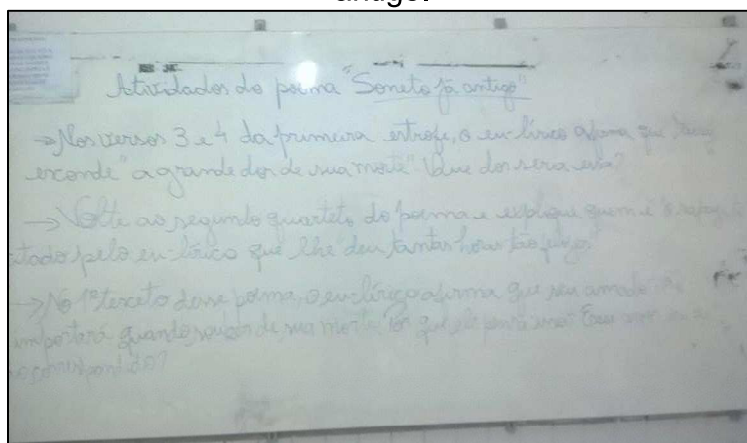 antigo.
Atividades do poema "Soneto já antigo"
→ Nos versos 3 e 4 da primeira estrofe, o eu-lírico afirma que
esconde "a grande dor de sua morte". Que dor será essa?
→ Volte ao segundo quarteto do poema e explique quem é
citado pelo eu-lírico que lhe deu tantas horas tão
→ No 1º terceto desse poema, o eu-lírico afirma que seu amado
importará quando souber de sua morte. Por que ele pensa isso? Esse amor
correspondido?